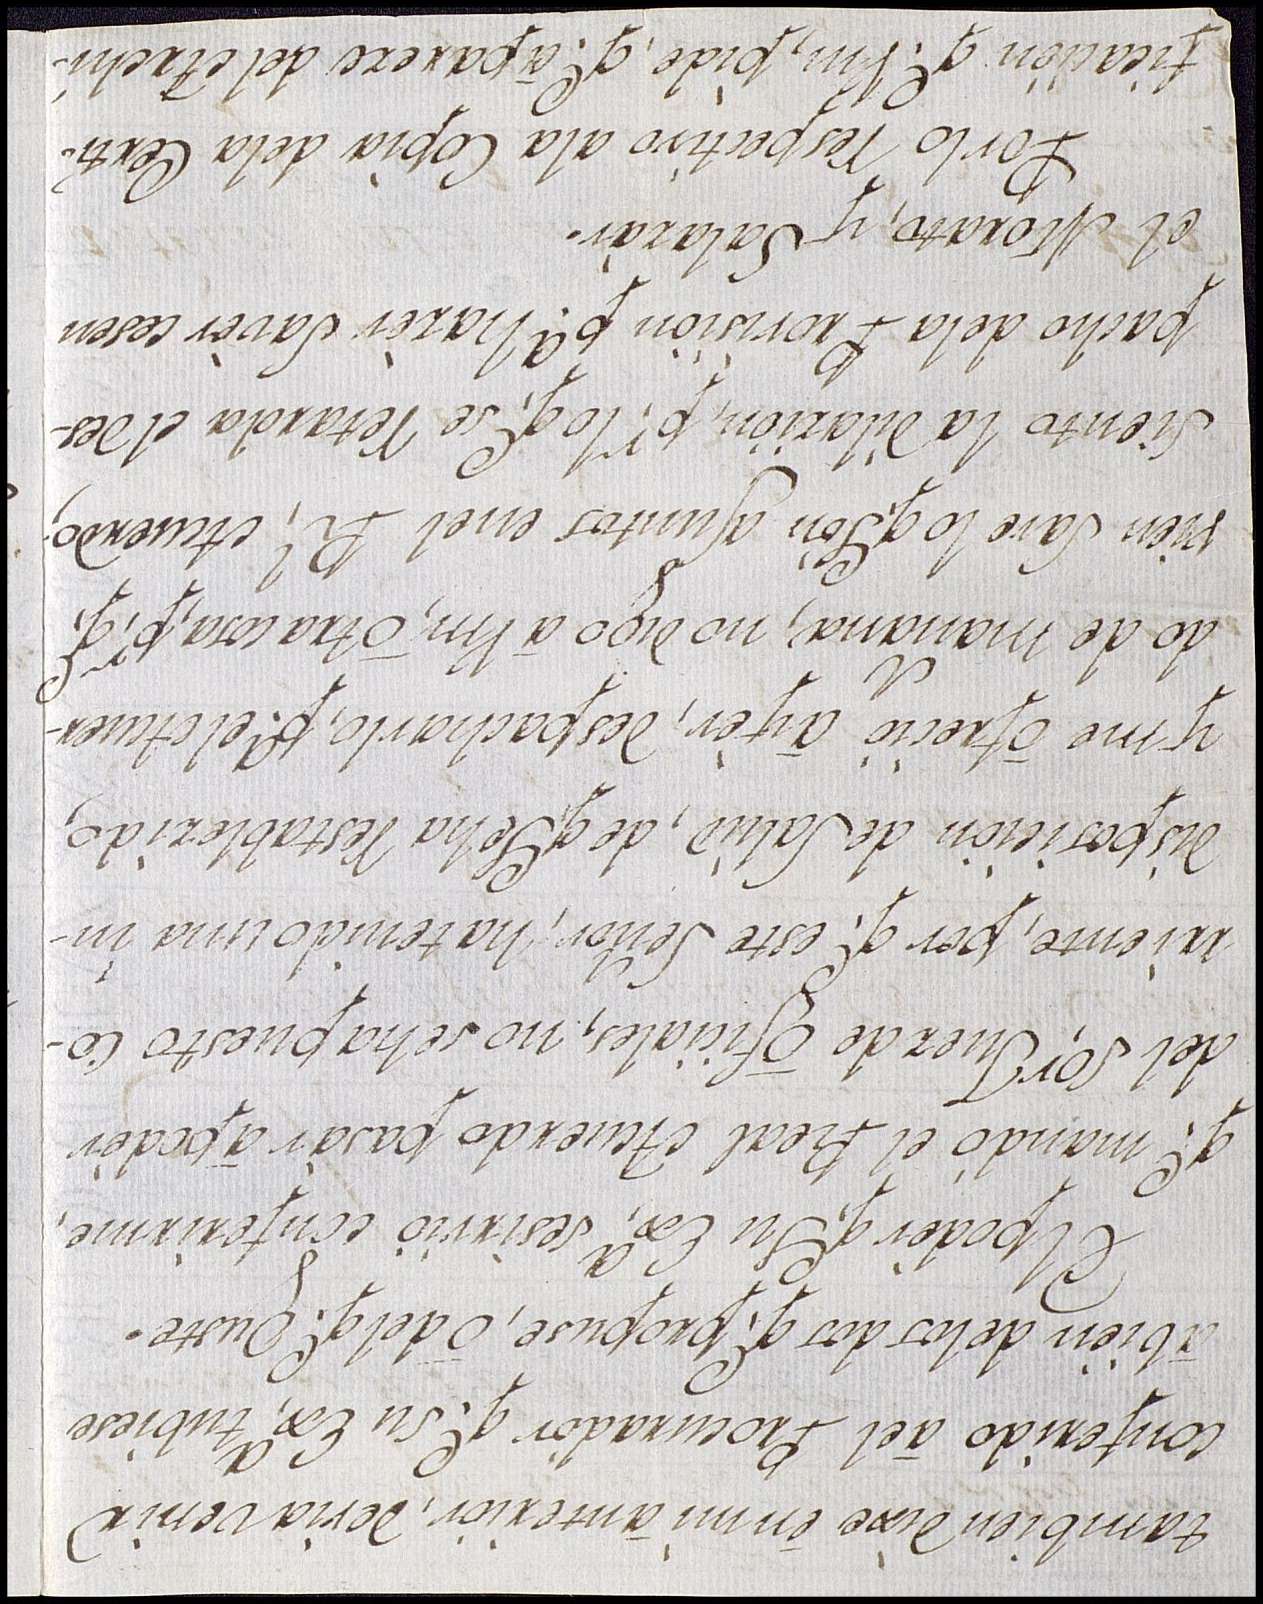 tambien dixe en mi anterior, devia venir
conferido àel Procurador q.e su Ex.a tubiese
àbien delos dos q.e propuse, ò delq.e Guste.
El poder q.e Su Ex.a sesirvio conferirme,
q.e mandò el Real Acuerdo pasàr àpodèr
del Sor, Juez de Oficiales, no sehapuesto co-
rriente, por q.e este Señor, hatenido una in-
disposicion de Salud, de q.e Seha restablezido,
y me ofreciò ayèr, despacharlo, p.a el Acuer-
do de mañana; no digo a Vm, òtra cosa, p.r q.e
vien save lo q.e Son asuntos enel R.l Acuerdo;
Siento la dilazion, p.r lo q.e se retarda el des-
pacho dela Provision p.a hazèr Savèr cesen
el Morato, y Salazàr.
Porlo respectivo ala Copia dela Certi-
ficaciòn q.e Vm, pide, q.e aparece del Archi-